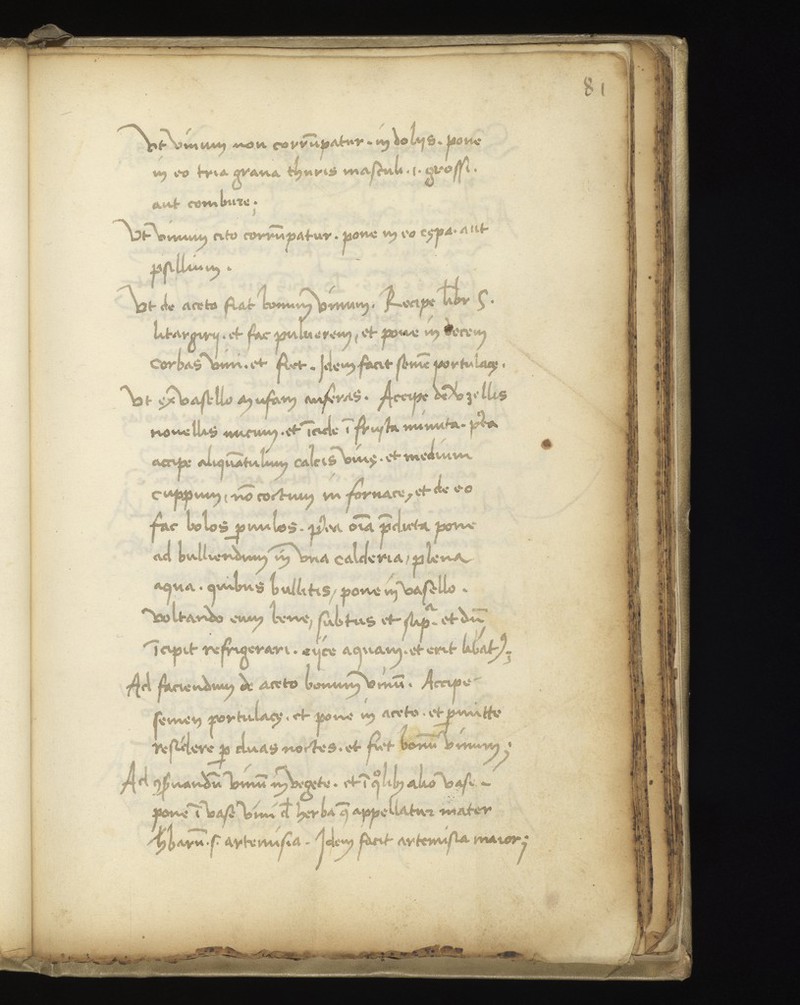 81
Ut vinum non corrũpatur · in doliis · pone
in eo tria grana thuris masculi · i · grossi ·
aut combure;
Ut vinum cito corrũpatur · pone in eo cępa · aut
psillium ·
Ut de aceto fiat bonum vinum · Recipe libr
litargirij · et fac pulverem, et pone in decem
corbas vini · et fiet · Idem facit semẽ portulacę ·
Ut ex vasello mufam auferas · Accipe de
novellis nucum · et ĩcide ĩ frusta minuta ·
accipe aliquãtulum calcis vivę · et medium
cuppum, nõ coctum in fornace, et de eo
fac bolos pvulos · oĩa p̃dicta pone
ad bulliendum in una calderia, plena
aqua · quibus bullitis, pone in vasello ·
voltando eum bene, subtus et sup · et dũ
ĩcipit refrigerari · eijce aquam · et erit libat9;
Ad faciendum de aceto bonum vinũ · Accipe
semen portulacę · et pone in aceto · et pmitte
residere p duas noctes · et fiet bonũ vinum;
Ad 9servandũ vinũ in vegete · et ĩ qolibz alio vase ·
pone ĩ vase vini d herba q̃ appellatur mater
hbarũ · s · artemisia · Idem facit artemisia maior;